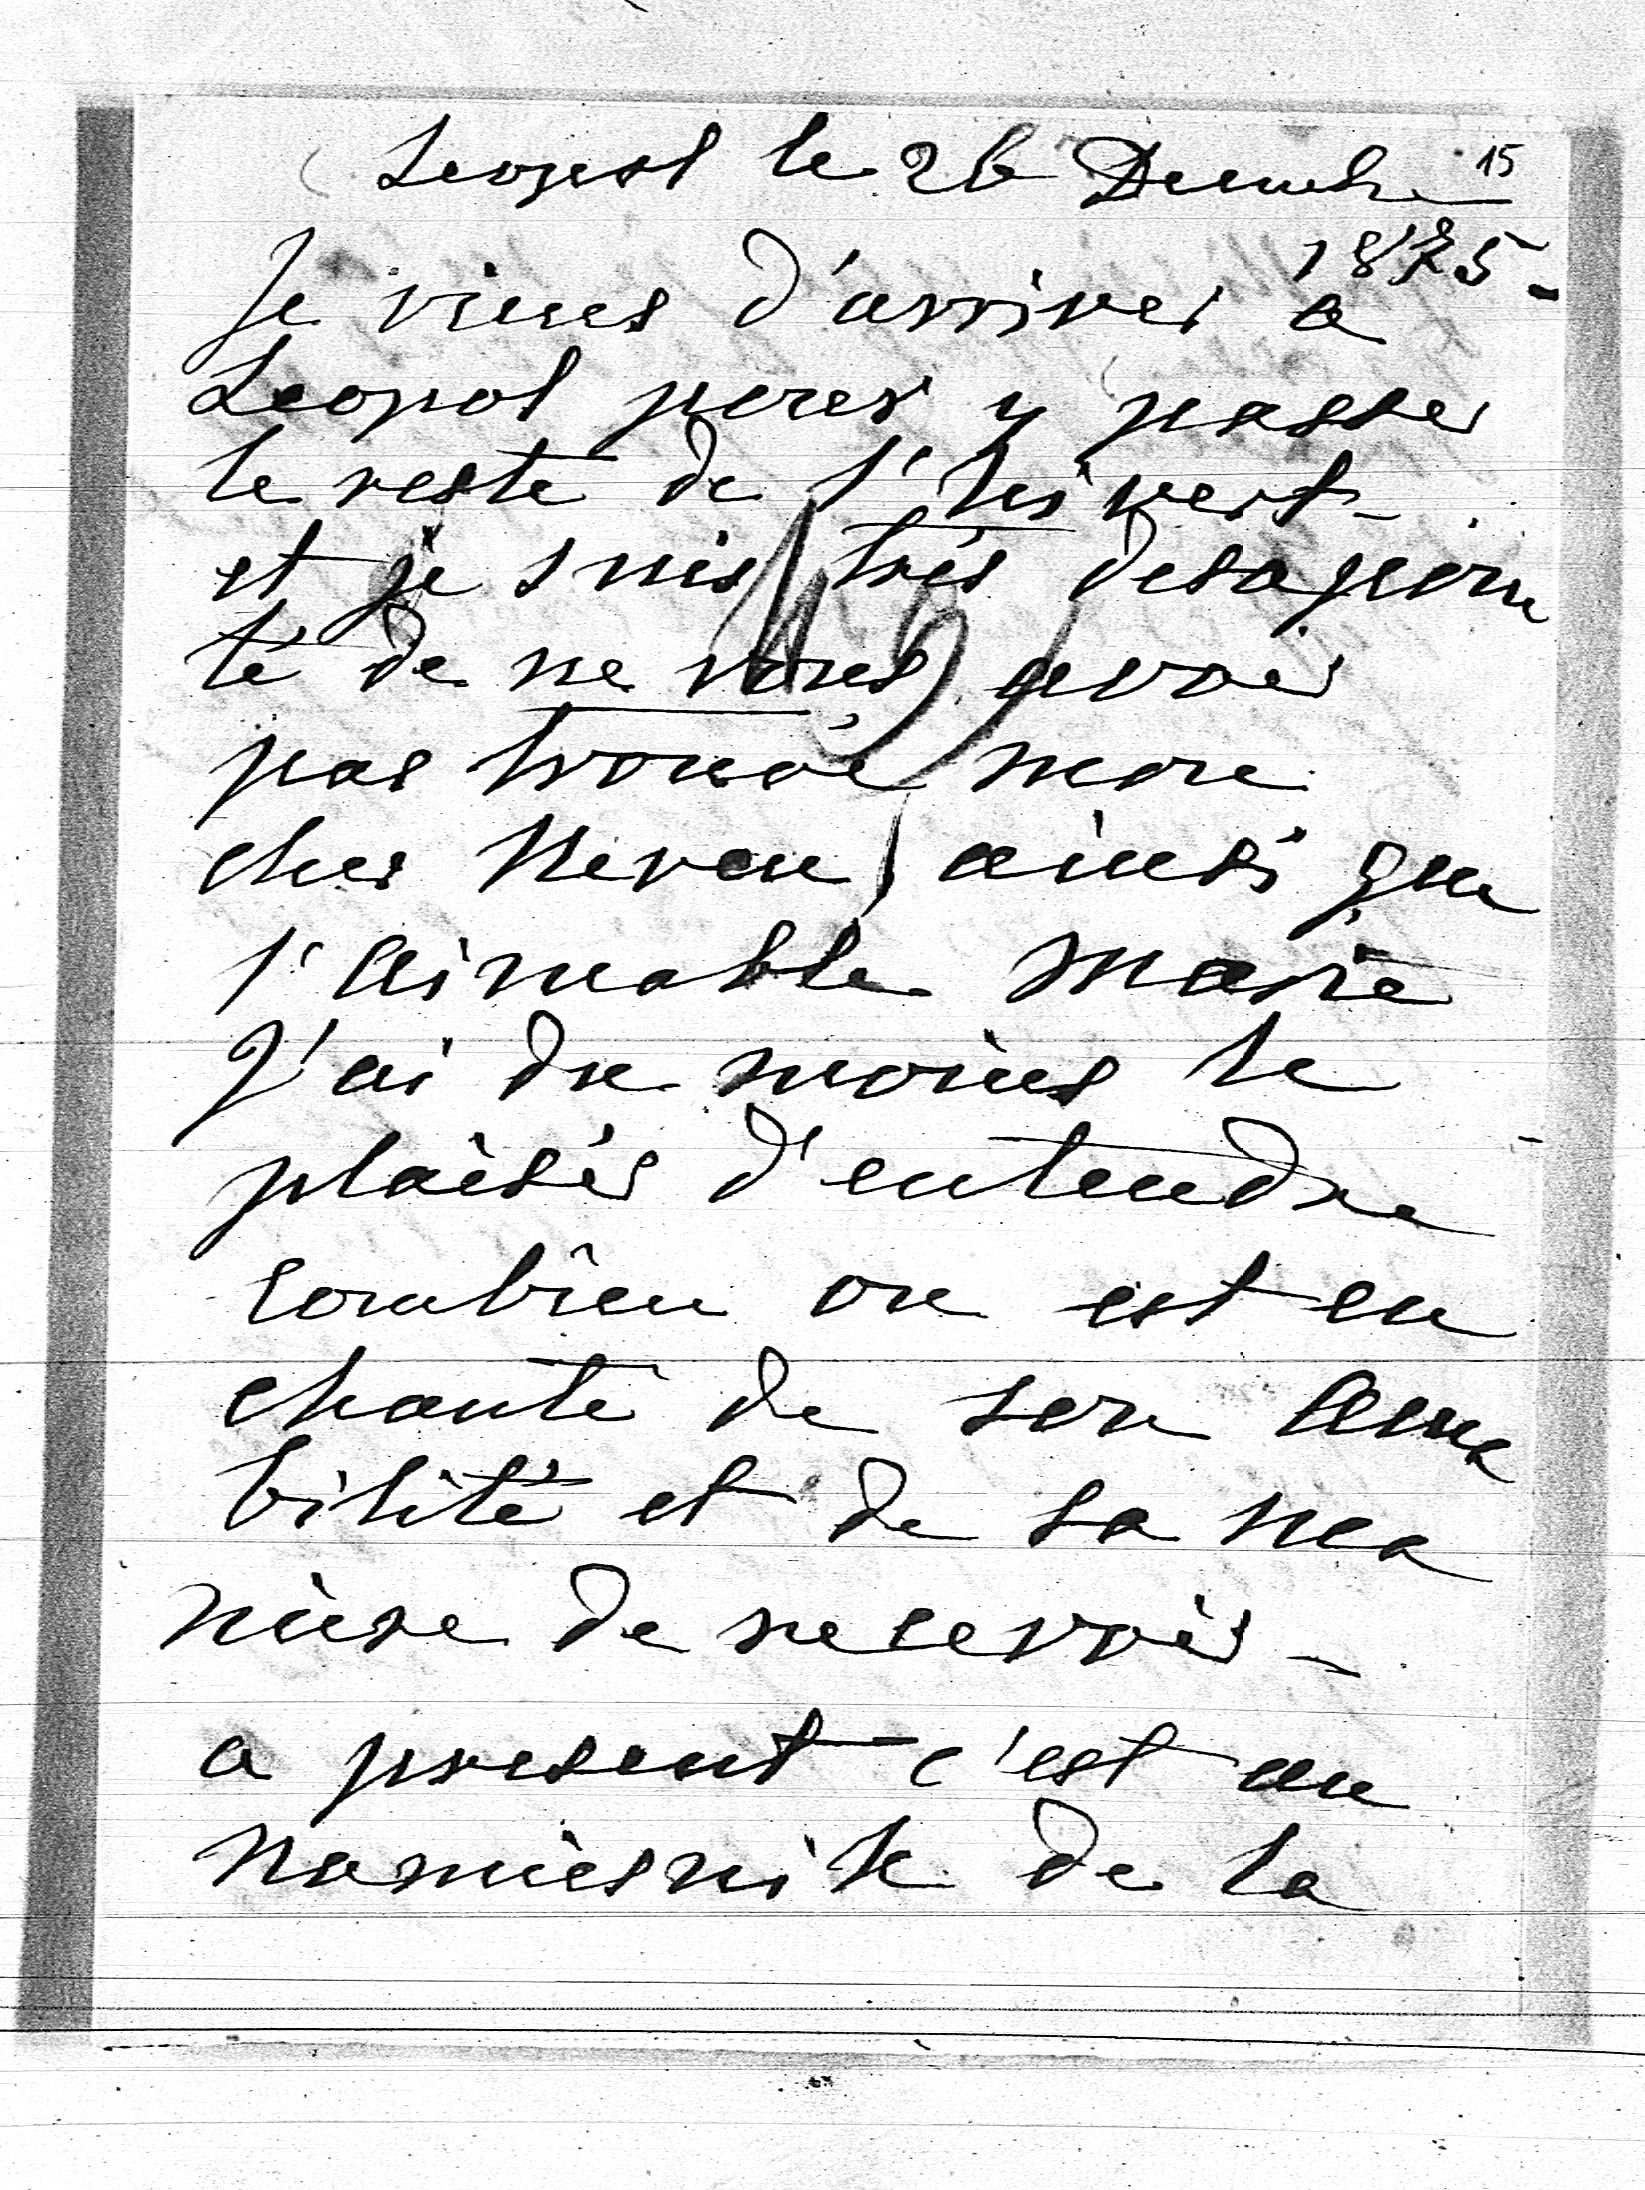 Leopol le 26 Decembre 15
1875 -
Je viens d'arriver a
Leopol pour y passer
le reste de l'hivert -
et je suis très desapoin
té de ne vous avoir
pas trouvé mon
cher Neveu, ainsi que
l'aimable Marie
J'ai du moins le
plaisir d'entendre
combien on est en
chanté de son ama
bilité et de sa ma
nière de recevoir -
a present c'est au
Namiesnik de la